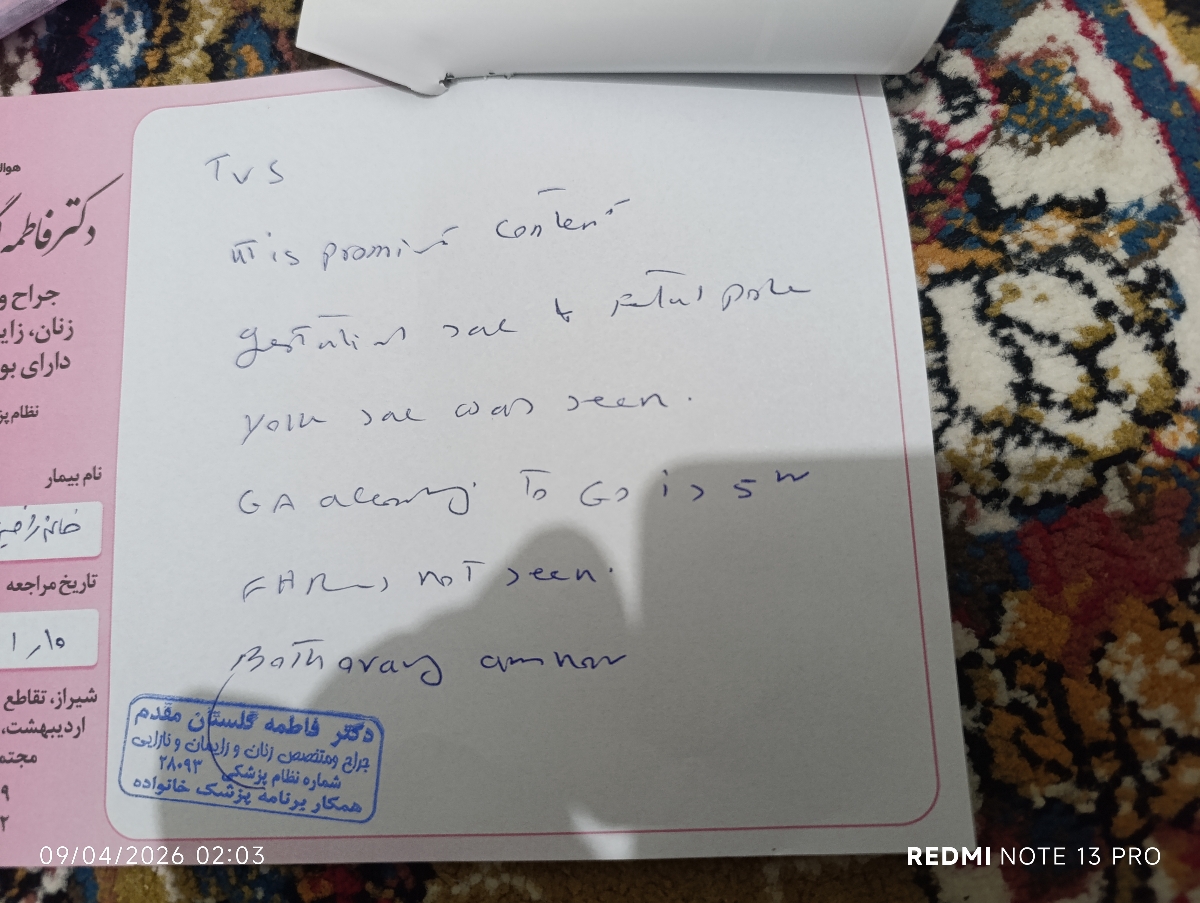 هوال
دکتر فاطمه گ
جراح و
زنان، زای
دارای بو
نظام پز
نام بیمار
تاریخ مراجعه
۱۰ر۱
شیراز، تقاطع
اردیبهشت،
مجتم
۹
۲
TVS
ut is prominent content
gestational sac & Fetal pole
yolk sac was seen.
GA according to GS is 5w
FHR is not seen.
Both ovary are nor
دکتر فاطمه گلستان مقدم
جراح و متخصص زنان و زایمان و نازایی
شماره نظام پزشکی ۲۸۰۹۳
همکار برنامه پزشک خانواده
09/04/2026 02:03
REDMI NOTE 13 PRO